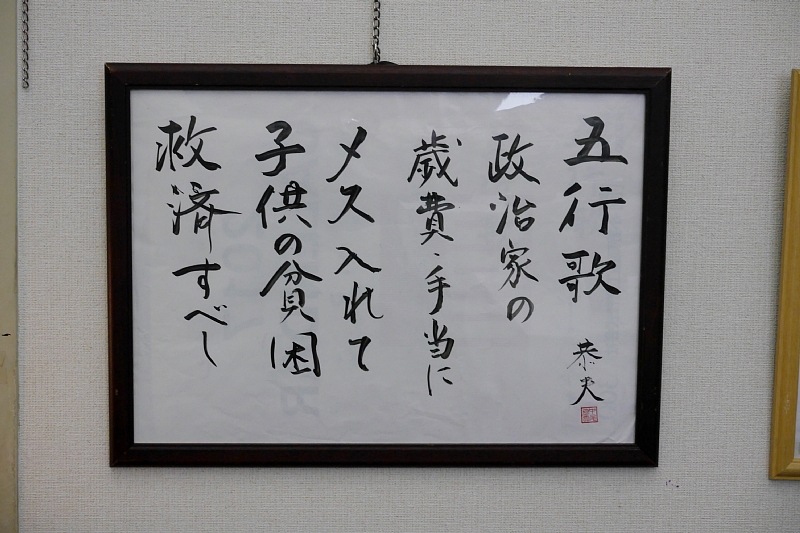 五行歌
恭史
政治家の
歳費・手当に
メス入れて
子供の貧困
救済すべし